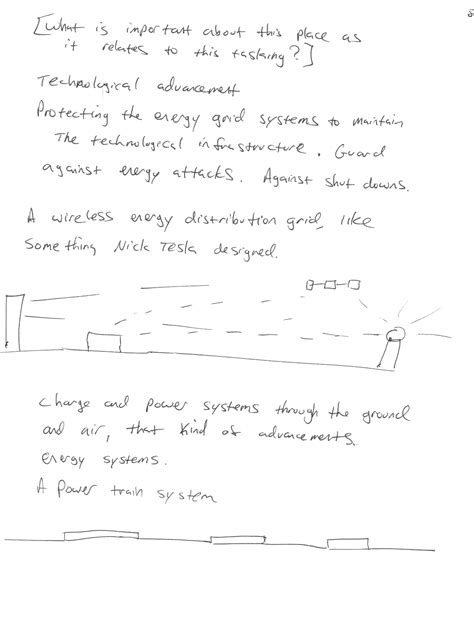 [What is important about this place as
it relates to this tasking?]
Technological advancement
Protecting the energy grid systems to maintain
The technological infrastructure. Guard
against energy attacks. Against shut downs.
A wireless energy distribution grid, like
Something Nick Tesla designed.
Charge and power systems through the ground
and air, that kind of advancements.
energy systems.
A power train system